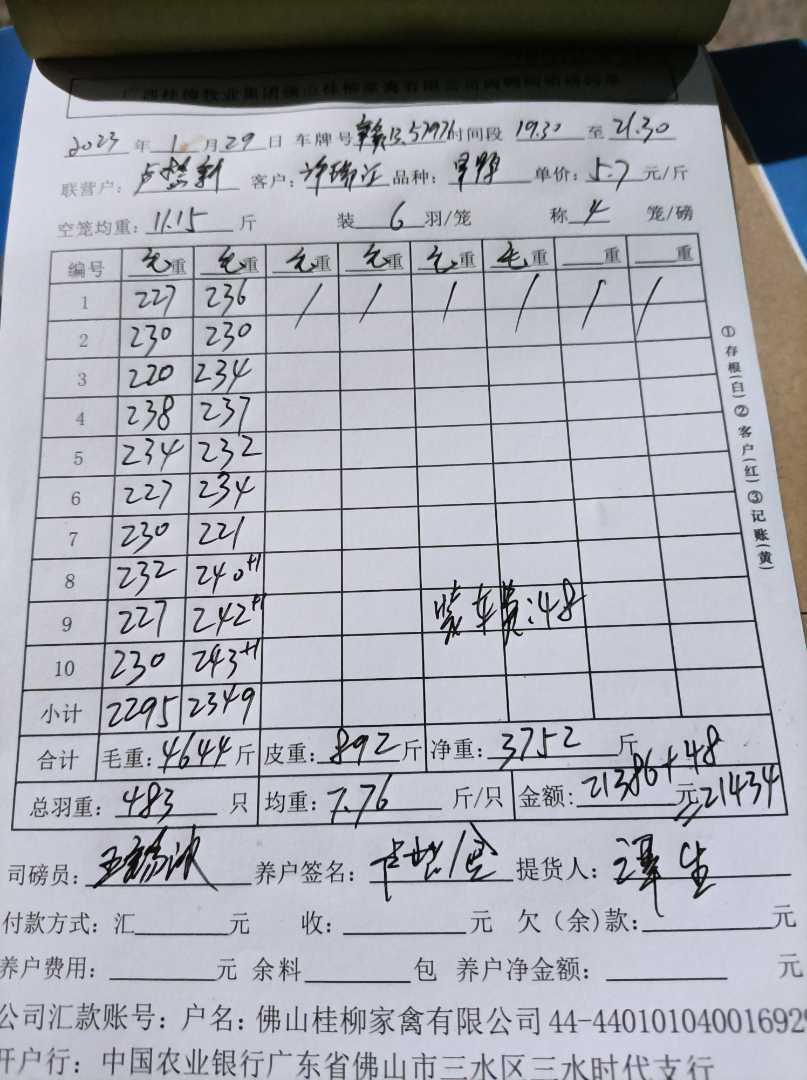 2023 年 1 月 29 日 车牌号 57976 时间段 19.30 至 21.30
联营户: 卢 新 客户: 许瑞江 品种: 单价: 5.7 元/斤
空笼均重: 11.15 斤 装 6 羽/笼 称 4 笼/磅
编号 毛重 毛重 毛重 毛重 毛重 毛重 重 重
1 227 236 / / / / / /
2 230 230
3 220 234
4 238 237
5 234 232
6 227 234
7 230 221
8 232 240+1
9 227 242+1 装车费:48
10 230 243+1
小计 2295 2349
合计 毛重: 4644 斤 皮重: 892 斤 净重: 3752 斤
总羽重: 483 只 均重: 7.76 斤/只 金额: 21386+48 元 =21434
司磅员: 养户签名: 提货人:
付款方式: 汇 元 收: 元 欠(余)款: 元
养户费用: 元 余料 包 养户净金额: 元
公司汇款账号: 户名: 佛山桂柳家禽有限公司 44-440101040016929
开户行: 中国农业银行广东省佛山市三水区三水时代支行
①存根(白)②客户(红)③记账(黄)